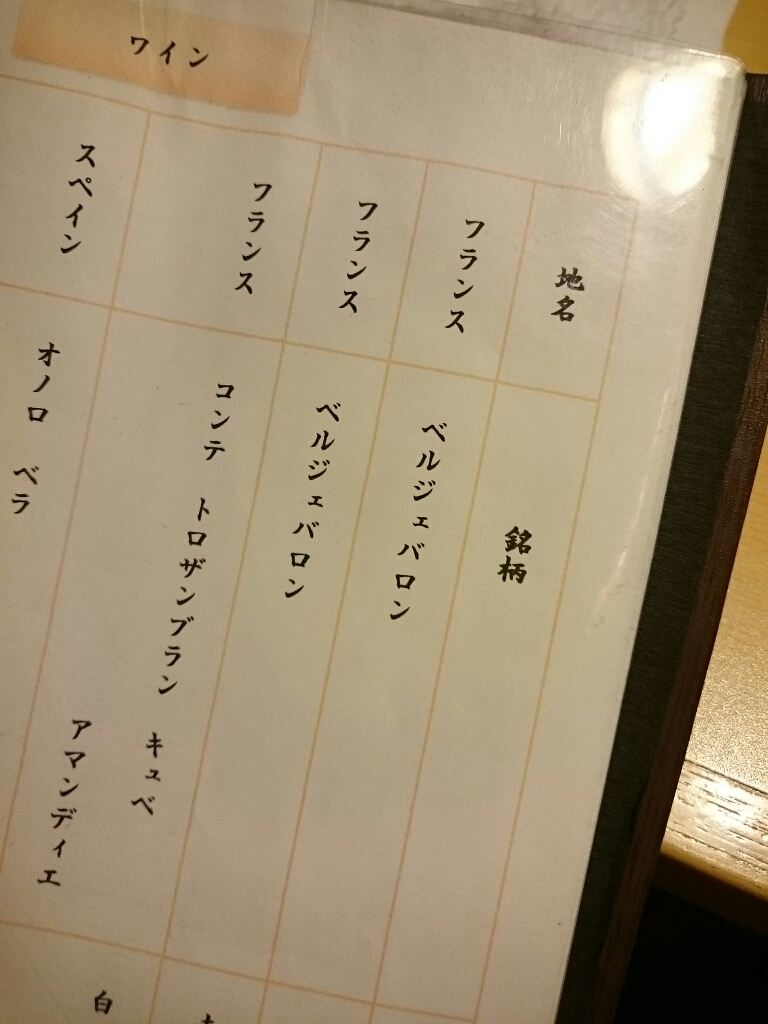 ワイン
地名
銘柄
フランス
ベルジェバロン
フランス
ベルジェバロン
フランス
コンテ トロザンブラン キュベ
アマンディエ
白
スペイン
オノロ ベラ